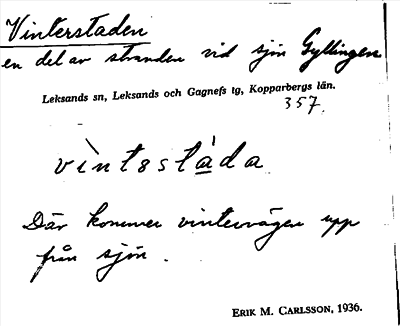 Vinterstaden
en del av stranden vid sjön Gyllingen
Leksands sn, Leksands och Gagnefs tg, Kopparbergs län.
357.
vìntəstàda
Där kommer vintervägen upp
från sjön.
ERIK M. CARLSSON, 1936.